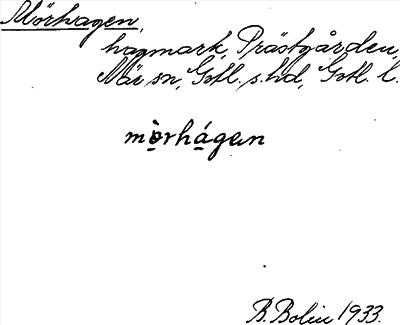 Mörhagen,
hagmark, Prästgården,
När sn, Gotl. s. hd, Gotl. l.
mò̤rhá̱gen
B. Bolin 1933.